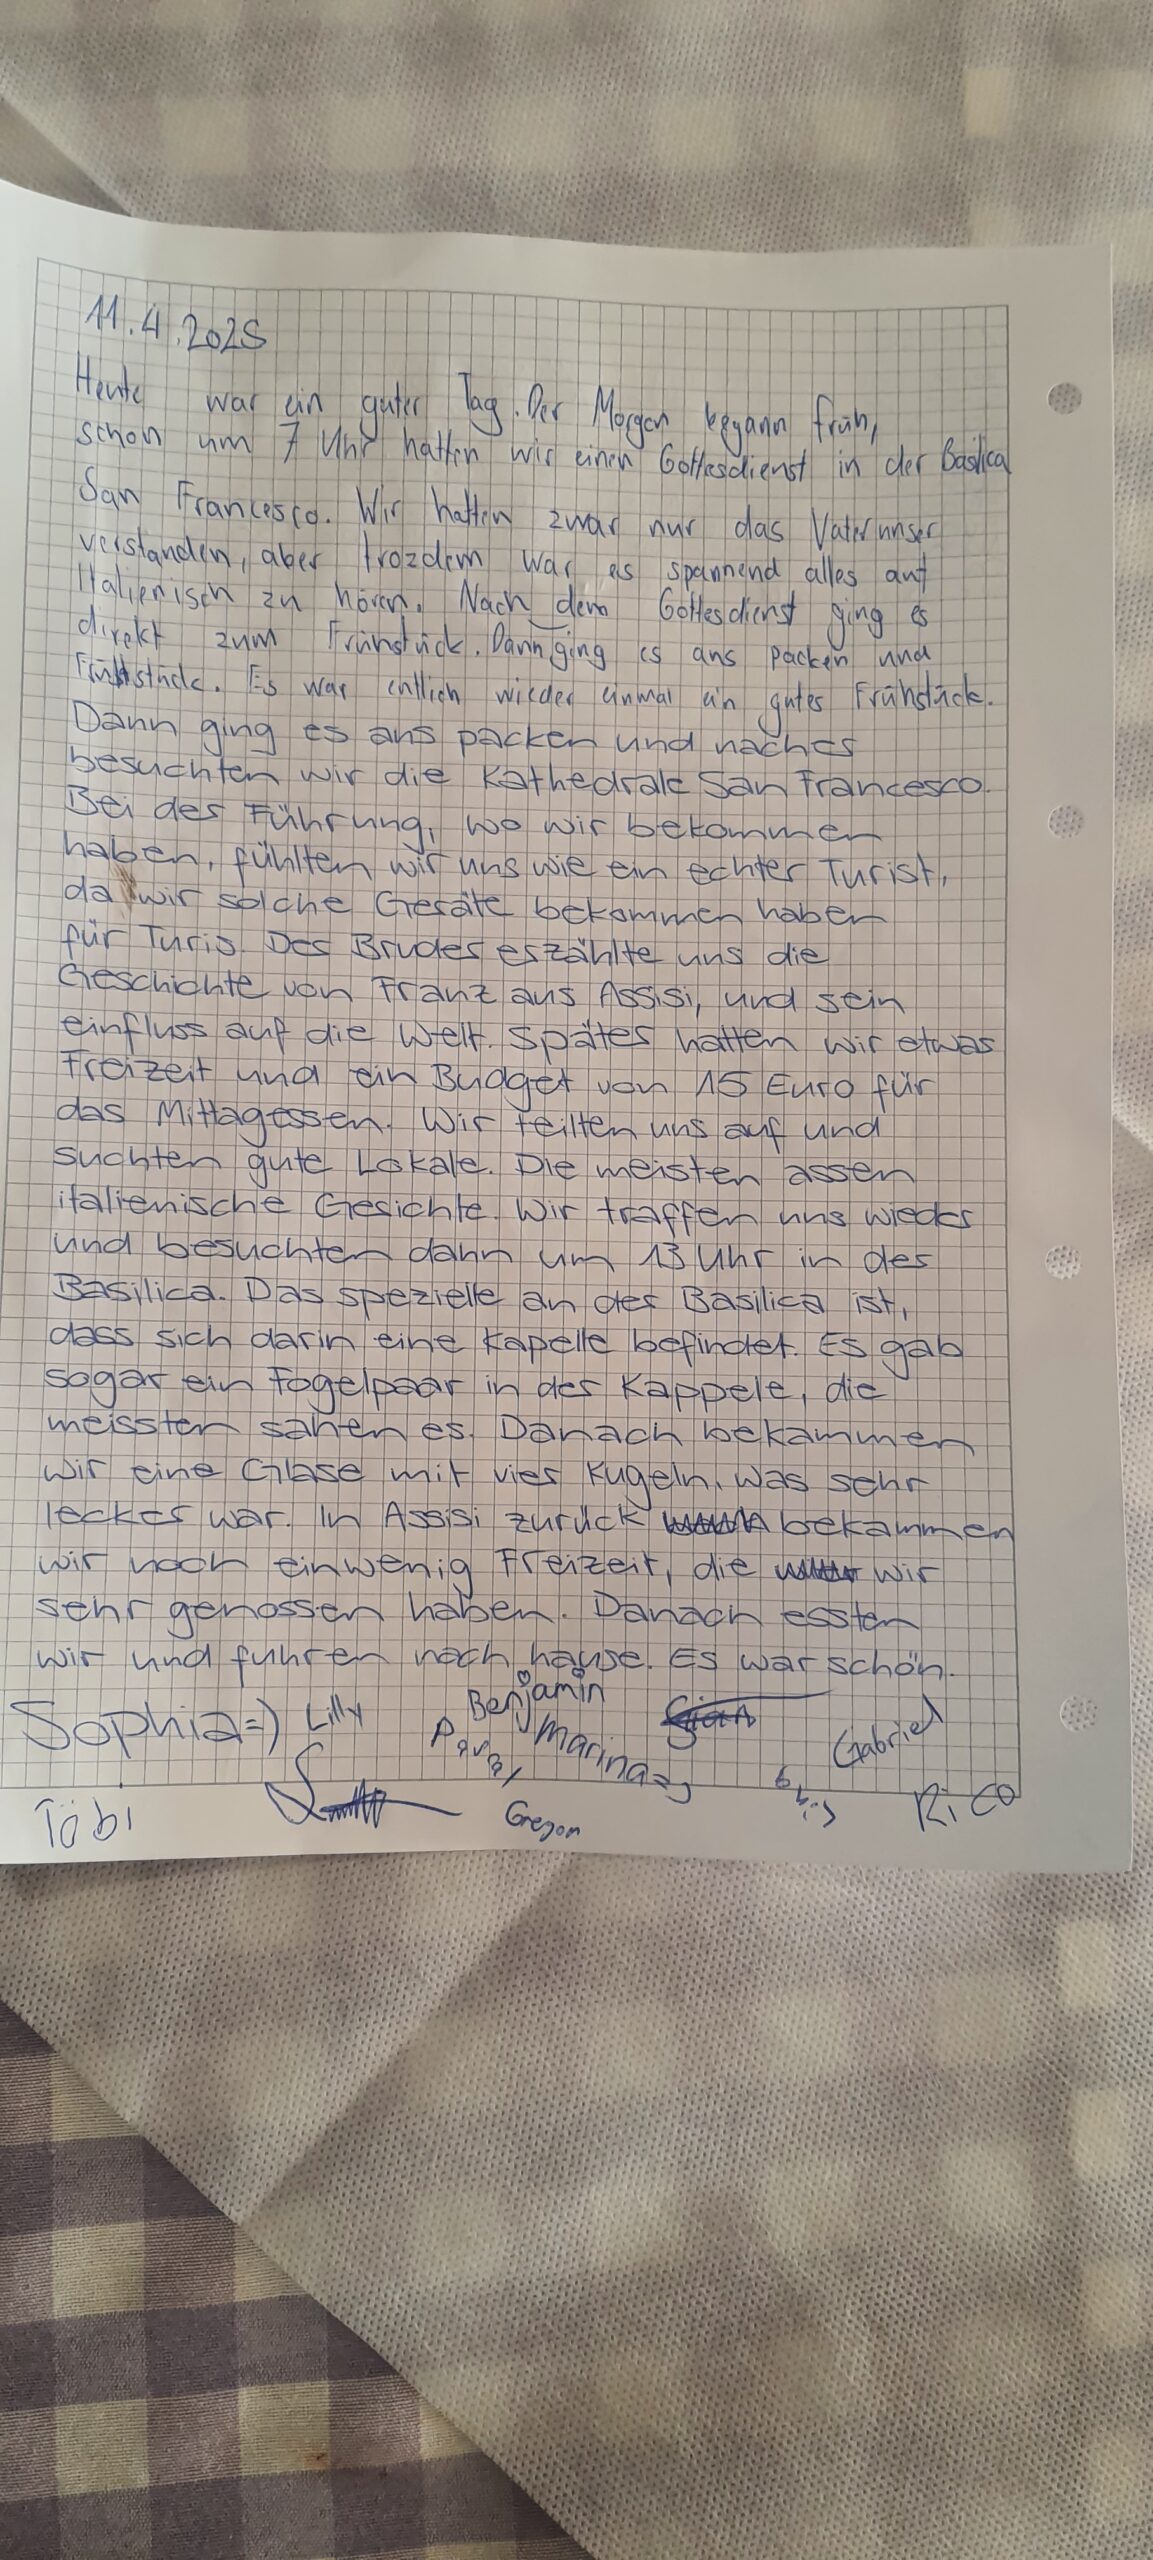 11.4.2025
Heute war ein guter Tag. Der Morgen begann früh,
schon um 7 Uhr hatten wir einen Gottesdienst in der Basilica
San Francesco. Wir hatten zwar nur das Vaterunser
verstanden, aber trozdem war es spannend alles auf
Italienisch zu hören. Nach dem Gottesdienst ging es
direkt zum Frühstück. Dann ging es ans packen und
Frühstück. Es war entlich wieder einmal ein gutes Frühstück.
Dann ging es ans packen und naches
besuchten wir die Kathedrale San Francesco.
Bei der Führung, wo wir bekommen
haben, fühlten wir uns wie ein echter Turist,
da wir solche Geräte bekommen haben
für Turis. Der Bruder erzählte uns die
Geschichte von Franz aus Assisi, und sein
einfluss auf die Welt. Später hatten wir etwas
Freizeit und ein Budget von 15 Euro für
das Mittagessen. Wir teilten uns auf und
suchten gute Lokale. Die meisten assen
italienische Gesichte. Wir traffen uns wieder
und besuchten dann um 13 Uhr in der
Basilica. Das spezielle an der Basilica ist,
dass sich darin eine Kapelle befindet. Es gab
sogar ein Fogelpaar in der Kappele, die
meissten sahen es. Danach bekammen
wir eine Glase mit vier Kugeln, was sehr
lecker war. In Assisi zurück bekammen
wir noch einwenig Freizeit, die wir
sehr genossen haben. Danach essten
wir und fuhren nach hause. Es war schön.
Sophia=) Lilly Benjamin Marina Gian Gabriel
Tobi Gregor Rico